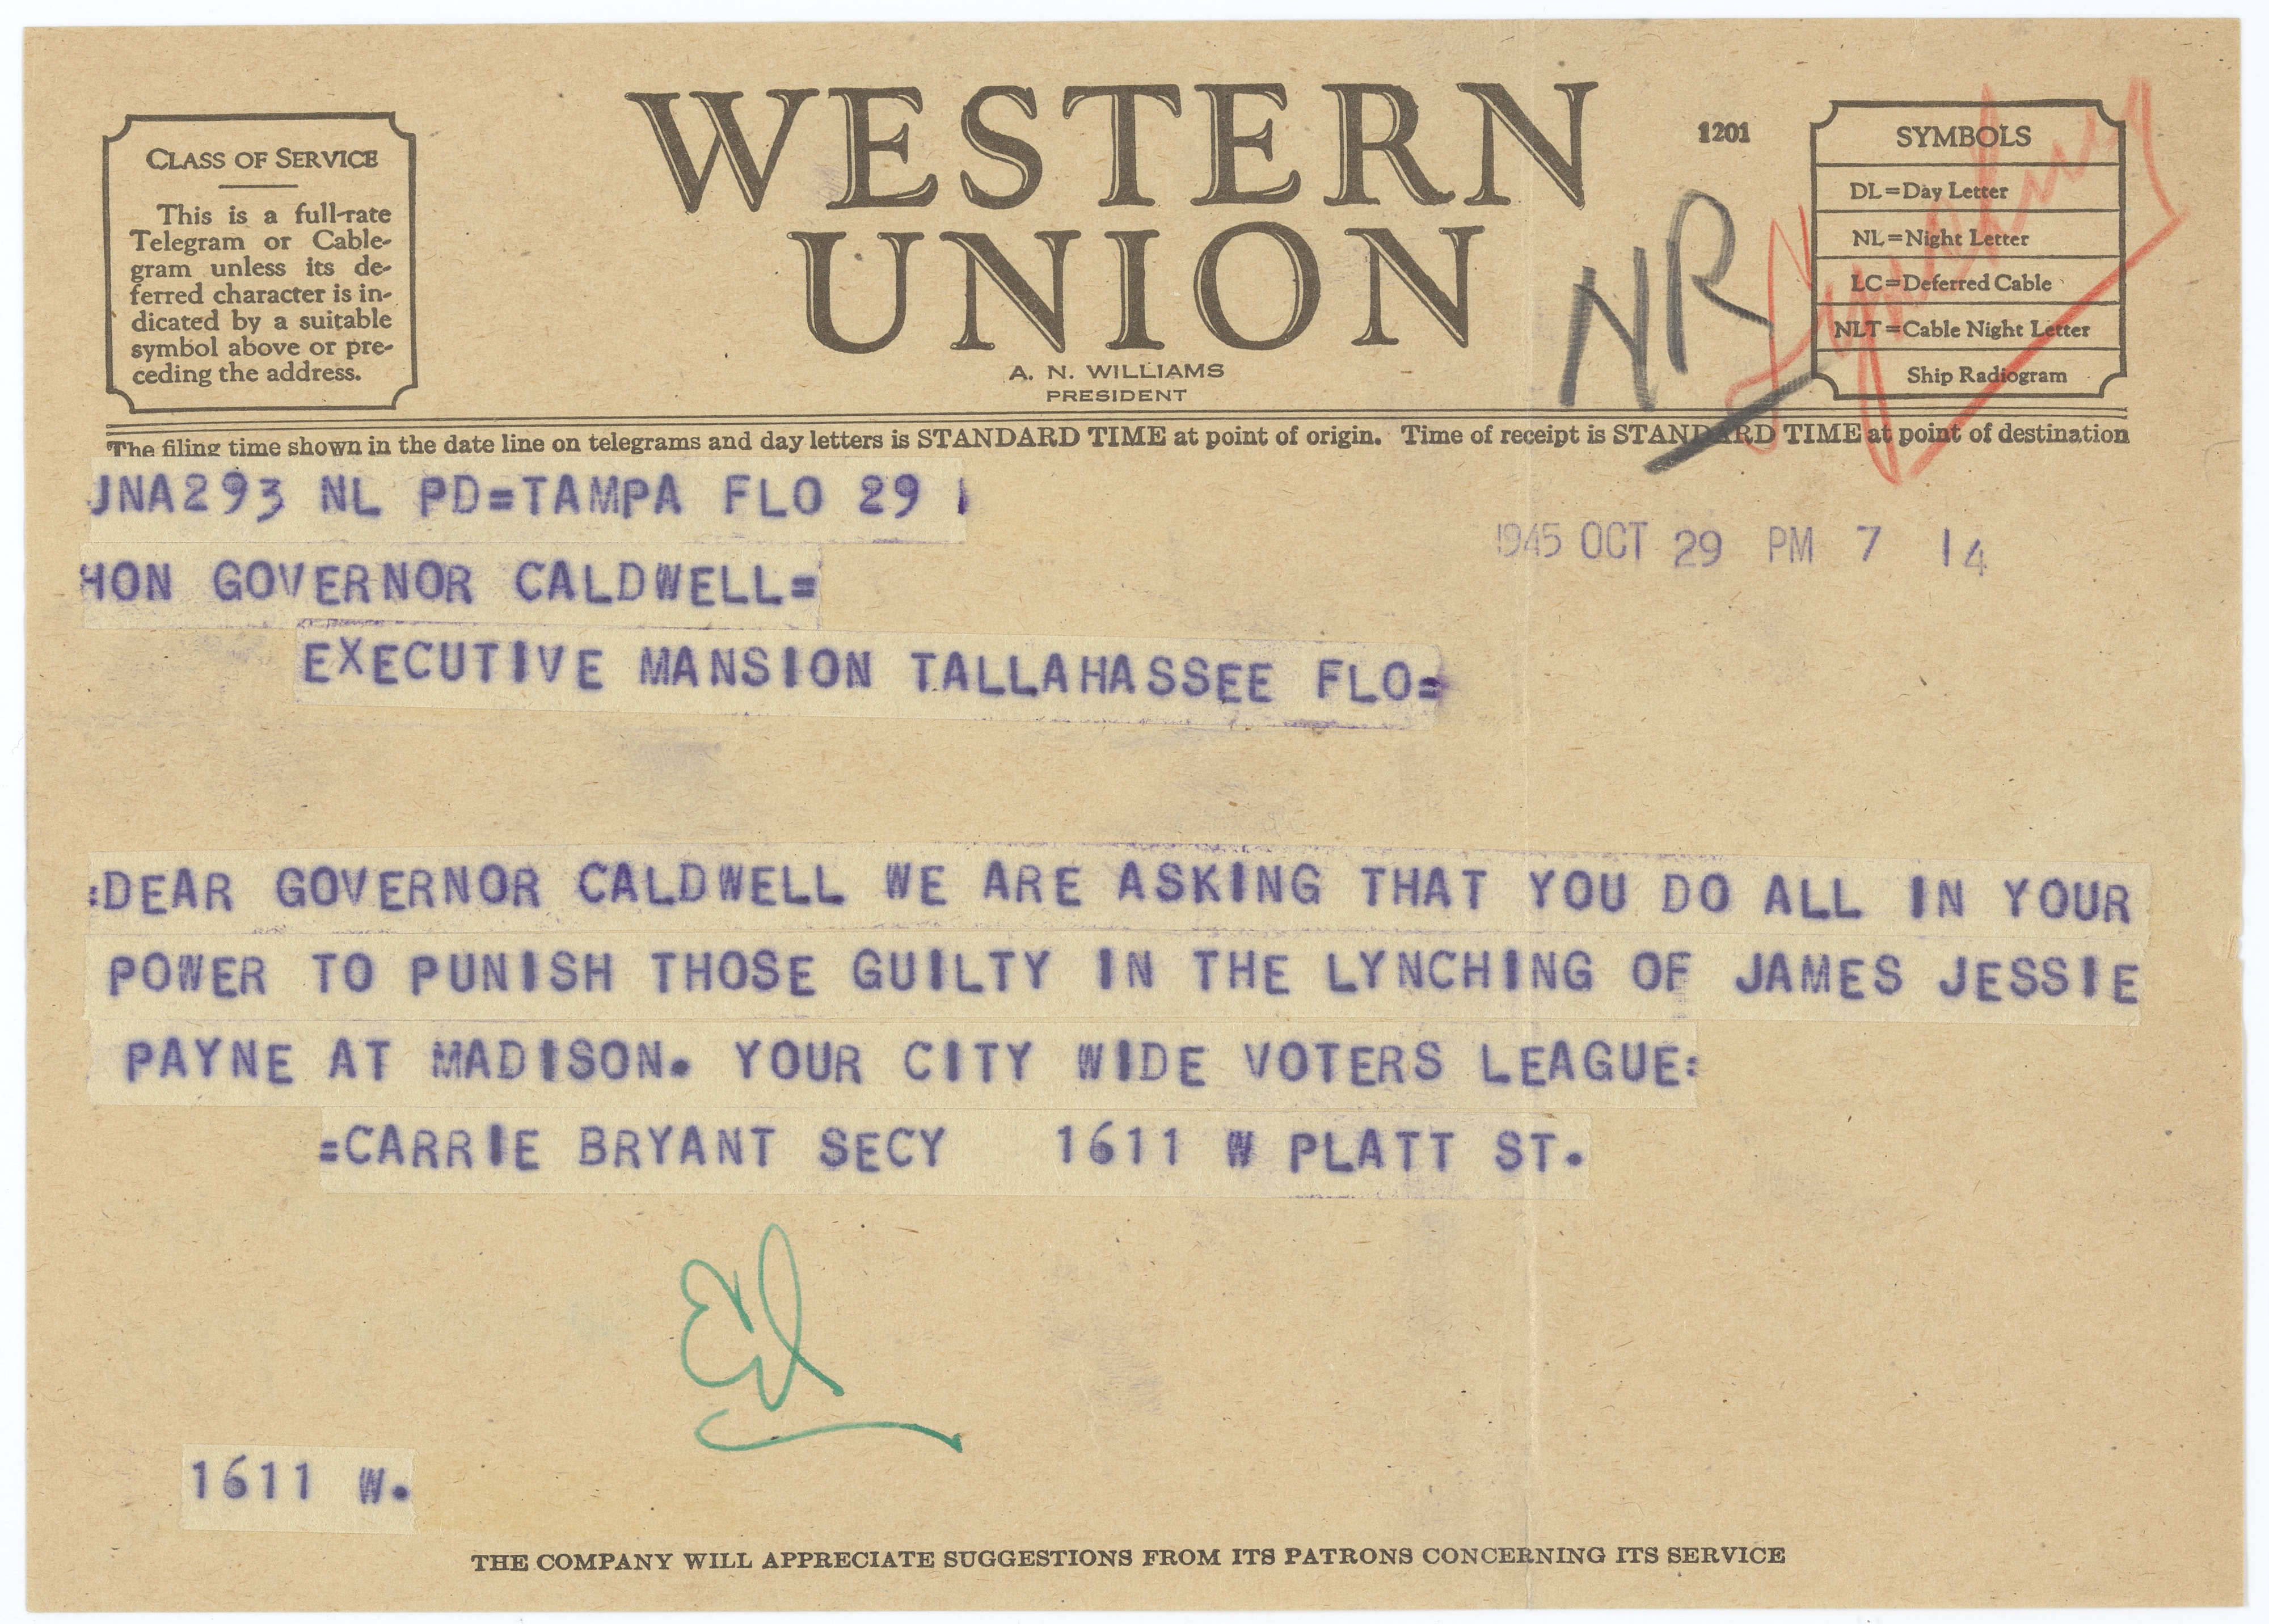 WESTERN
UNION
1201
A. N. WILLIAMS
PRESIDENT
CLASS OF SERVICE
This is a full-rate
Telegram or Cable-
gram unless its de-
ferred character is in-
dicated by a suitable
symbol above or pre-
ceding the address.
SYMBOLS
DL=Day Letter
NL=Night Letter
LC=Deferred Cable
NLT=Cable Night Letter
Ship Radiogram
NR
Lynching
The filing time shown in the date line on telegrams and day letters is STANDARD TIME at point of origin. Time of receipt is STANDARD TIME at point of destination
JNA293 NL PD=TAMPA FLO 29
1945 OCT 29 PM 7 14
HON GOVERNOR CALDWELL=
EXECUTIVE MANSION TALLAHASSEE FLO=
:DEAR GOVERNOR CALDWELL WE ARE ASKING THAT YOU DO ALL IN YOUR
POWER TO PUNISH THOSE GUILTY IN THE LYNCHING OF JAMES JESSIE
PAYNE AT MADISON. YOUR CITY WIDE VOTERS LEAGUE:
=CARRIE BRYANT SECY 1611 W PLATT ST.
1611 W.
THE COMPANY WILL APPRECIATE SUGGESTIONS FROM ITS PATRONS CONCERNING ITS SERVICE